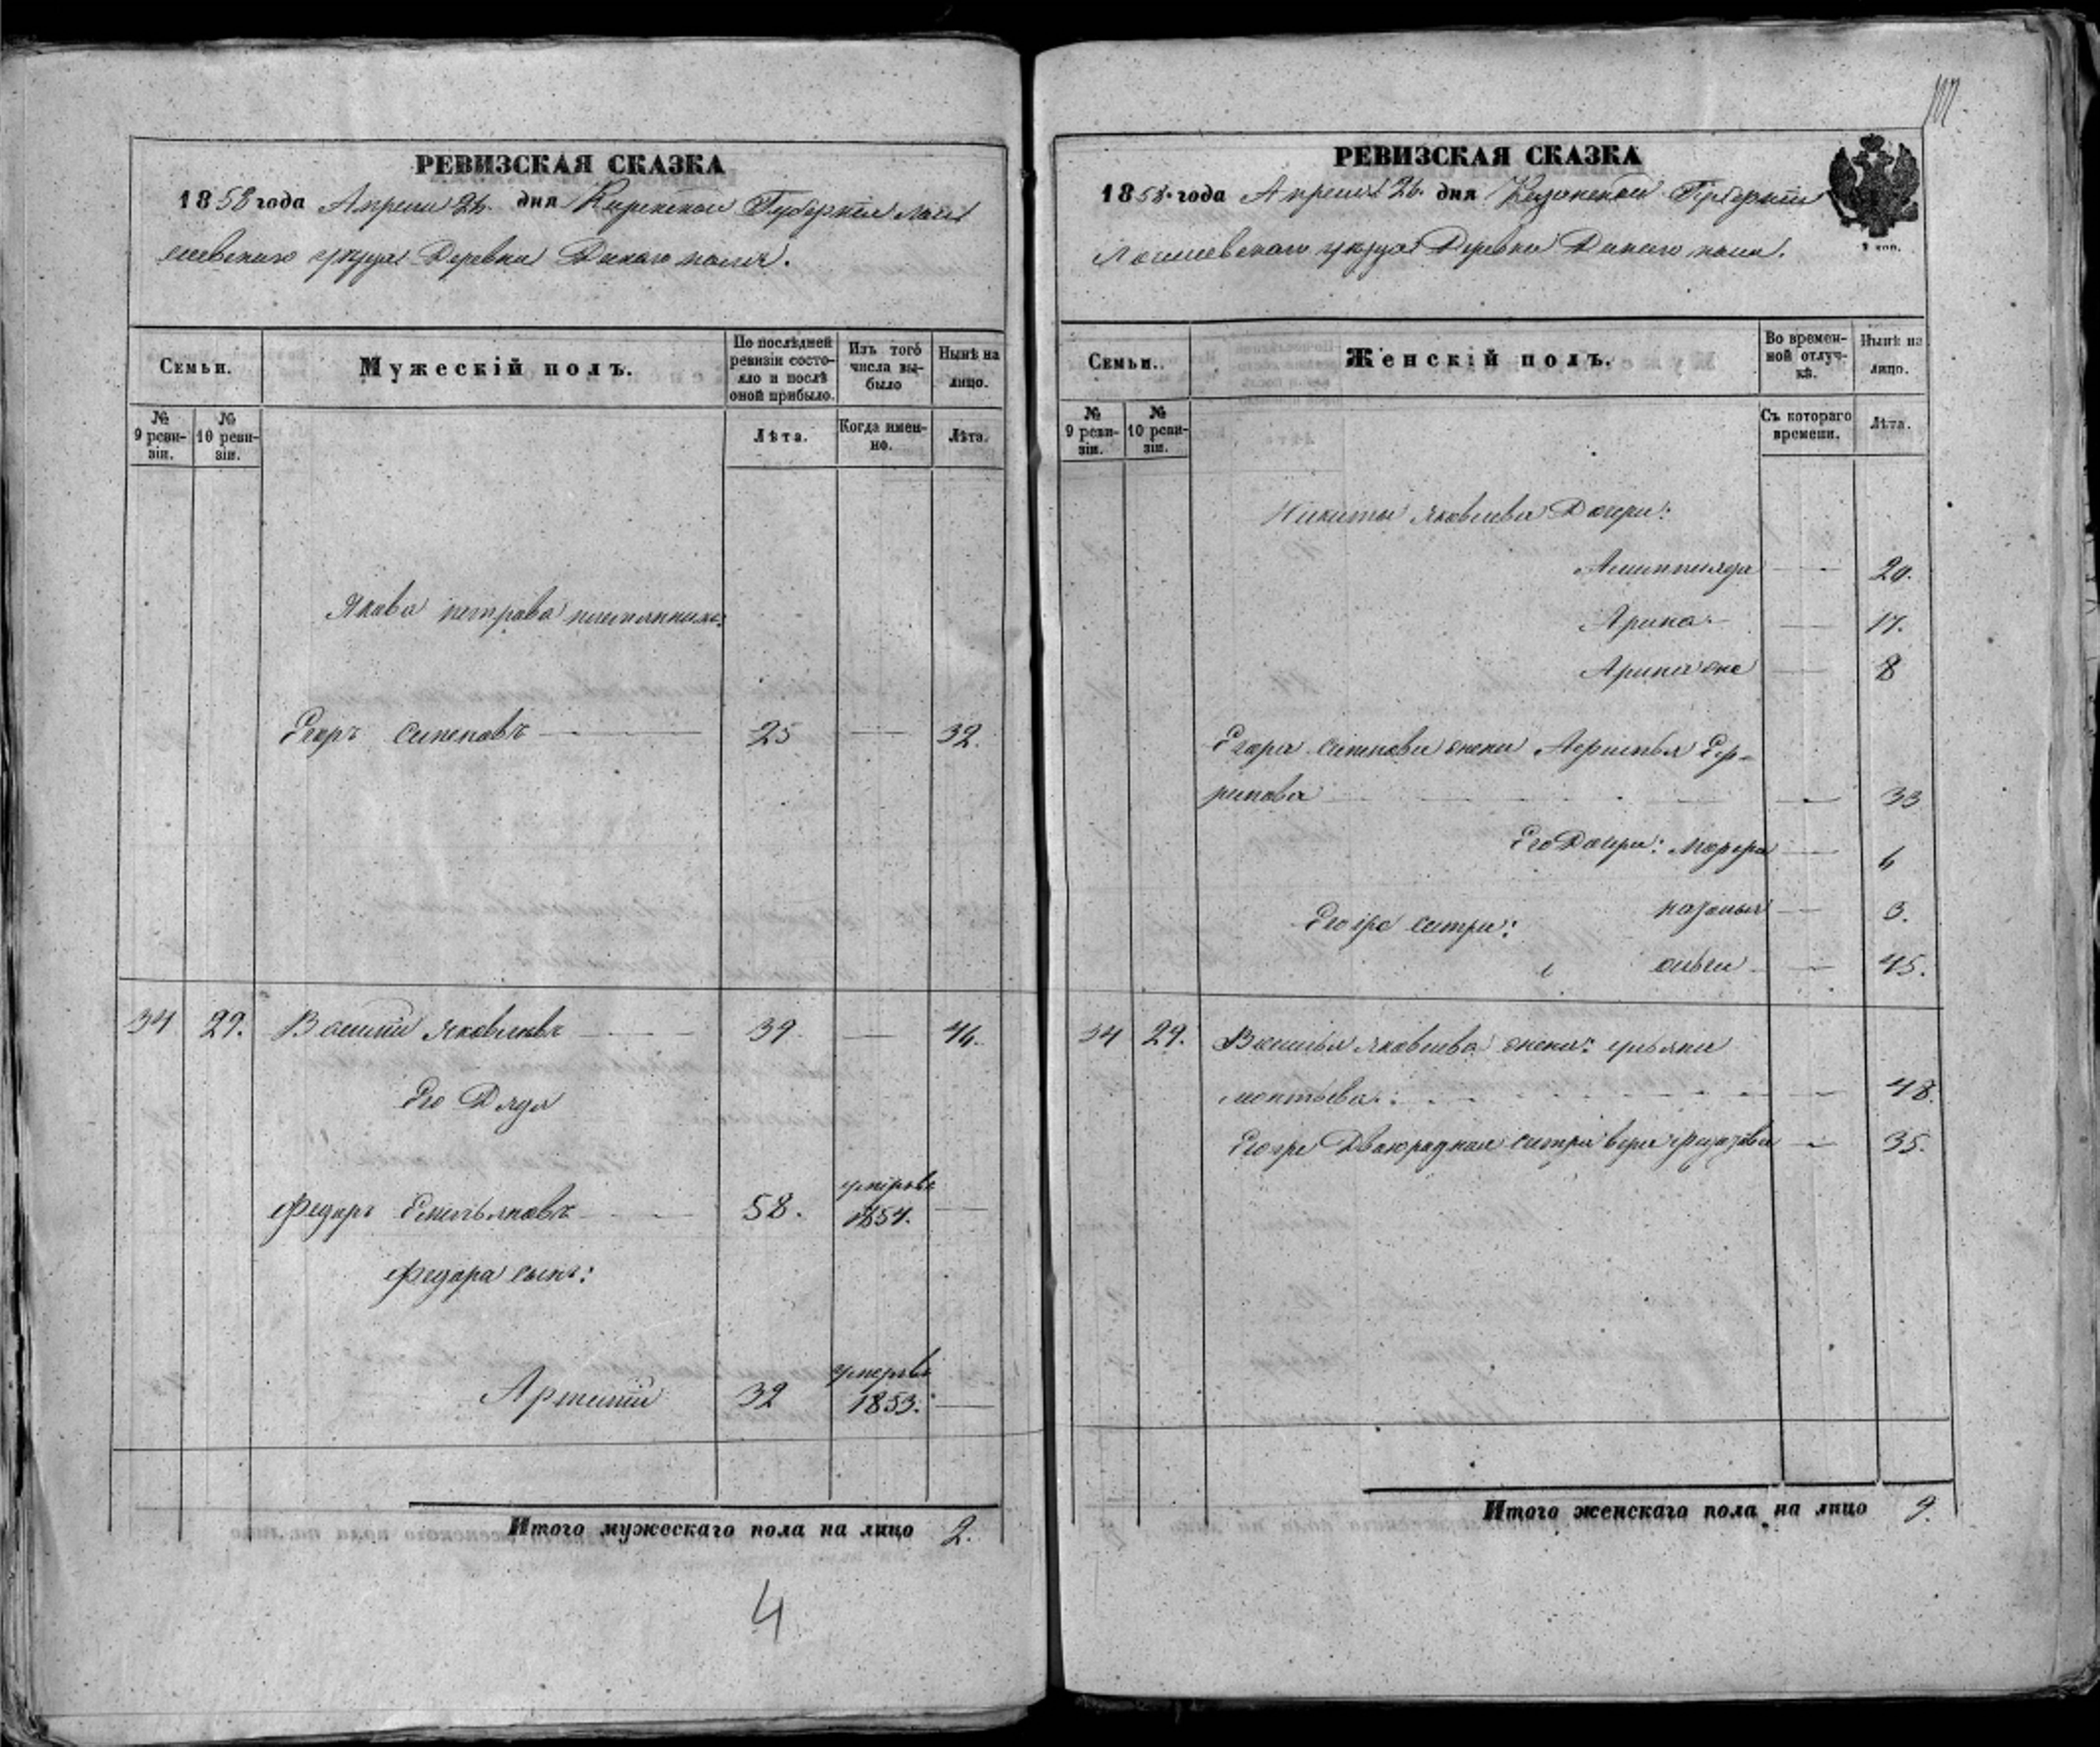 РЕВИЗСКАЯ СКАЗКА
1858 года Апреля 26. дня Казанской Губернiи Лаи
шевскаго уезда Деревни Дикаго поля.
Семьи.
Мужескiй полъ.
По послѣдней ревизiи состояло и послѣ оной прибыло.
Изъ того числа выбыло
Нынѣ на лицо.
№ 9 ревизiи.
№ 10 ревизiи.
Лѣта.
Когда именно.
Лѣта.
Якова петрова племянникъ:
Егоръ Синеповъ 25 — 32.
34 29. Василiй Яковлевъ 39 — 46.
Его Дядя
Федаръ Емельяновъ 58. умеръ 1854. —
Федара сынъ:
32 умеръ 1853. —
Итого мужескаго пола на лицо 2.
4
РЕВИЗСКАЯ СКАЗКА
1858. года Апреля 26. дня Казанской Губернiи
Лаишевскаго уезда Деревни Дикаго поля.
Семьи.
Женскiй полъ.
Во временной отлучкѣ.
Нынѣ на лицо.
№ 9 ревизiи.
№ 10 ревизiи.
Съ котораго времени.
Лѣта.
Никиты Яковлева Дочери:
20.
Арина — 17.
Арина — 8
Егора жена
33
Его Дочери: — 6
3.
Его сестра:
45.
34 29. Василья Яковлева жена: ульяна
48.
Его Двоюродная сестра вера — 35.
Итого женскаго пола на лицо 9.